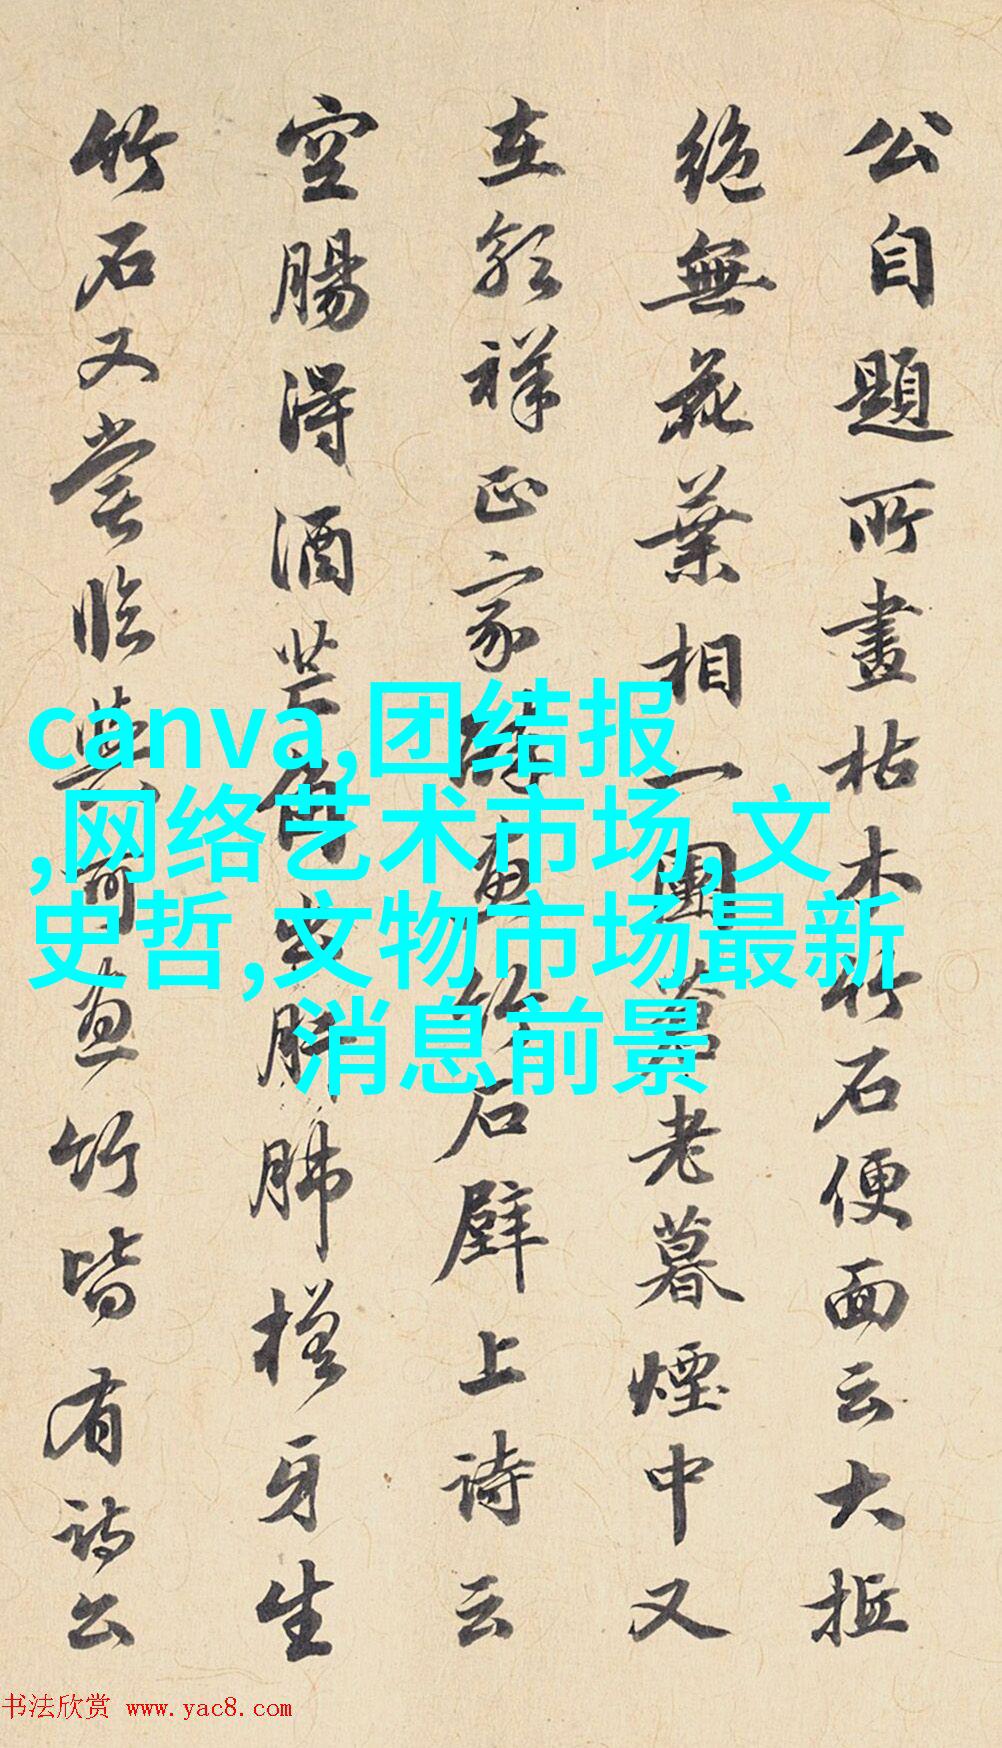 公自題所畫枯木竹石便面云大抵
絶無花葉相一團蒼老暮煙中又
在郭祥正家醉畫竹石壁上詩云
空腸得酒芒角出肝肺槎牙生
竹石又嘗臨與可畫竹皆有詩公
canva,团结报
,网络艺术市场,文
史哲,文物市场最新
消息前景
书法欣赏 www.yac8.com